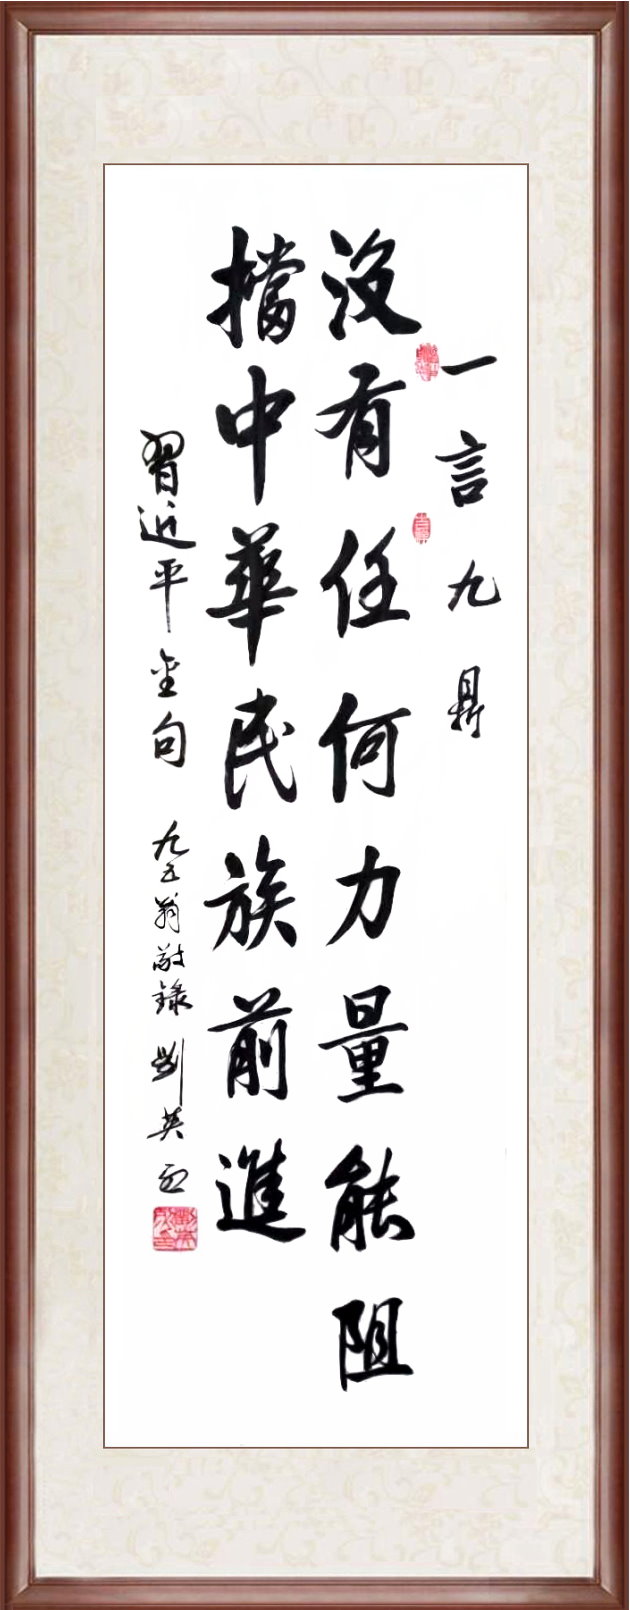 一言九鼎
没有任何力量能阻
擋中華民族前進
習近平金句
九五翁敬録 劉英